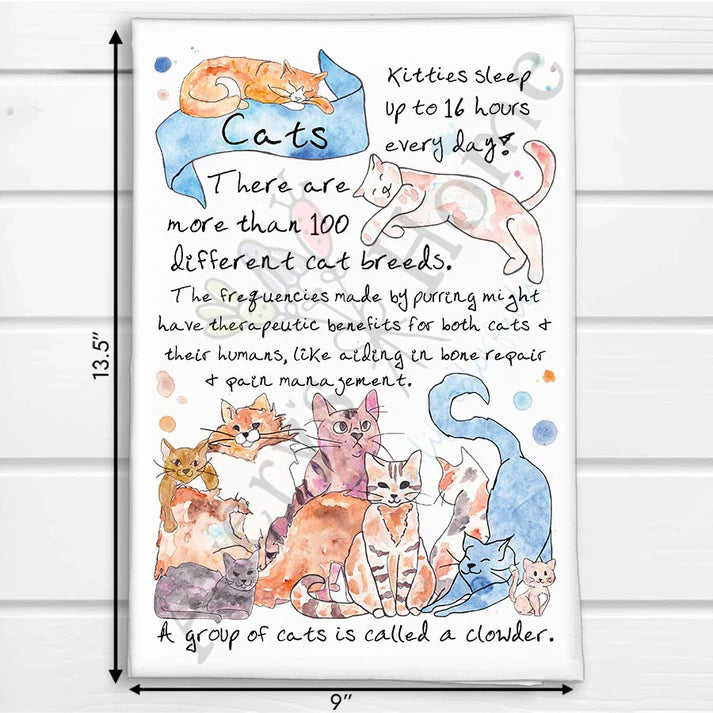 Cats
Kitties sleep
up to 16 hours
every day!
There are
more than 100
different cat breeds.
The frequencies made by purring might
have therapeutic benefits for both cats &
their humans, like aiding in bone repair
& pain management.
A group of cats is called a clowder.
13.5”
9”
Home